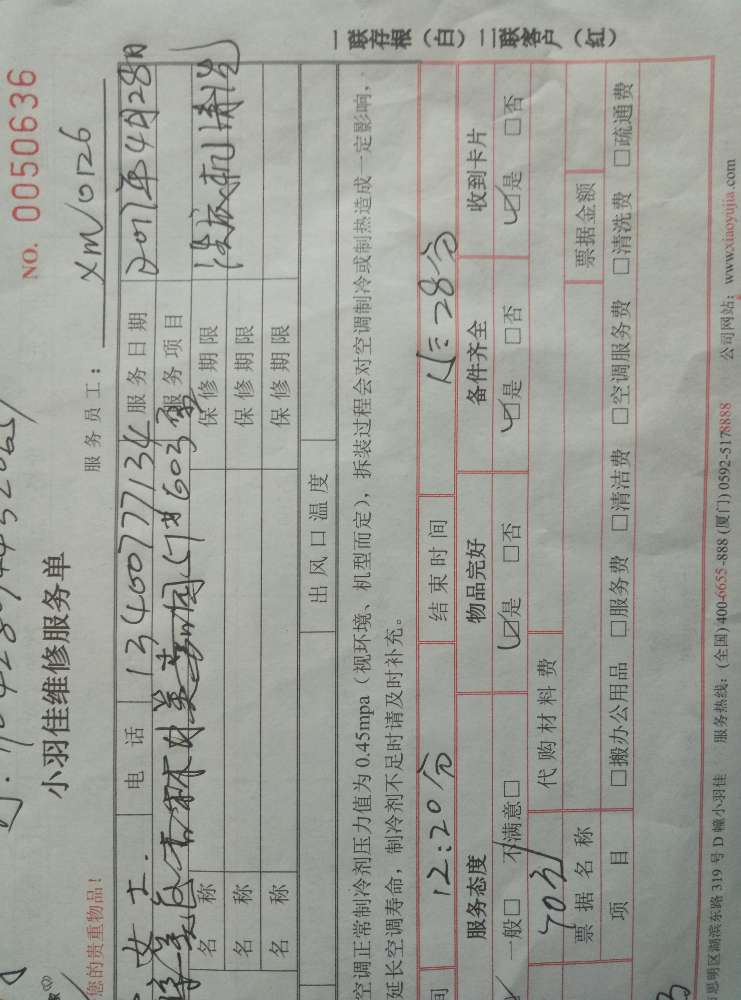 一联存根（白）二联客户（红）
NO. 0050636
小羽佳维修服务单
服务员工：XM/0126
您的贵重物品！
女士. 电话 13400777134 服务日期 2017年4月28日
服务项目
名称 保修期限 洗衣机清洗
名称 保修期限
名称 保修期限
出风口温度
空调正常制冷剂压力值为0.45mpa（视环境、机型而定），拆装过程会对空调制冷或制热造成一定影响，
延长空调寿命，制冷剂不足时请及时补充。
间 12:20分 结束时间 28分
服务态度 物品完好 备件齐全 收到卡片
一般□ 不满意□ ☑是 □否 ☑是 □否 ☑是 □否
70元 代购材料费
票据名称 票据金额
项目 □搬办公用品 □服务费 □清洁费 □空调服务费 □清洗费 □疏通费
思明区湖滨东路319号D幢小羽佳 服务热线：(全国)400-6655-888 (厦门)0592-5178888 公司网站：www.xiaoyujia.com